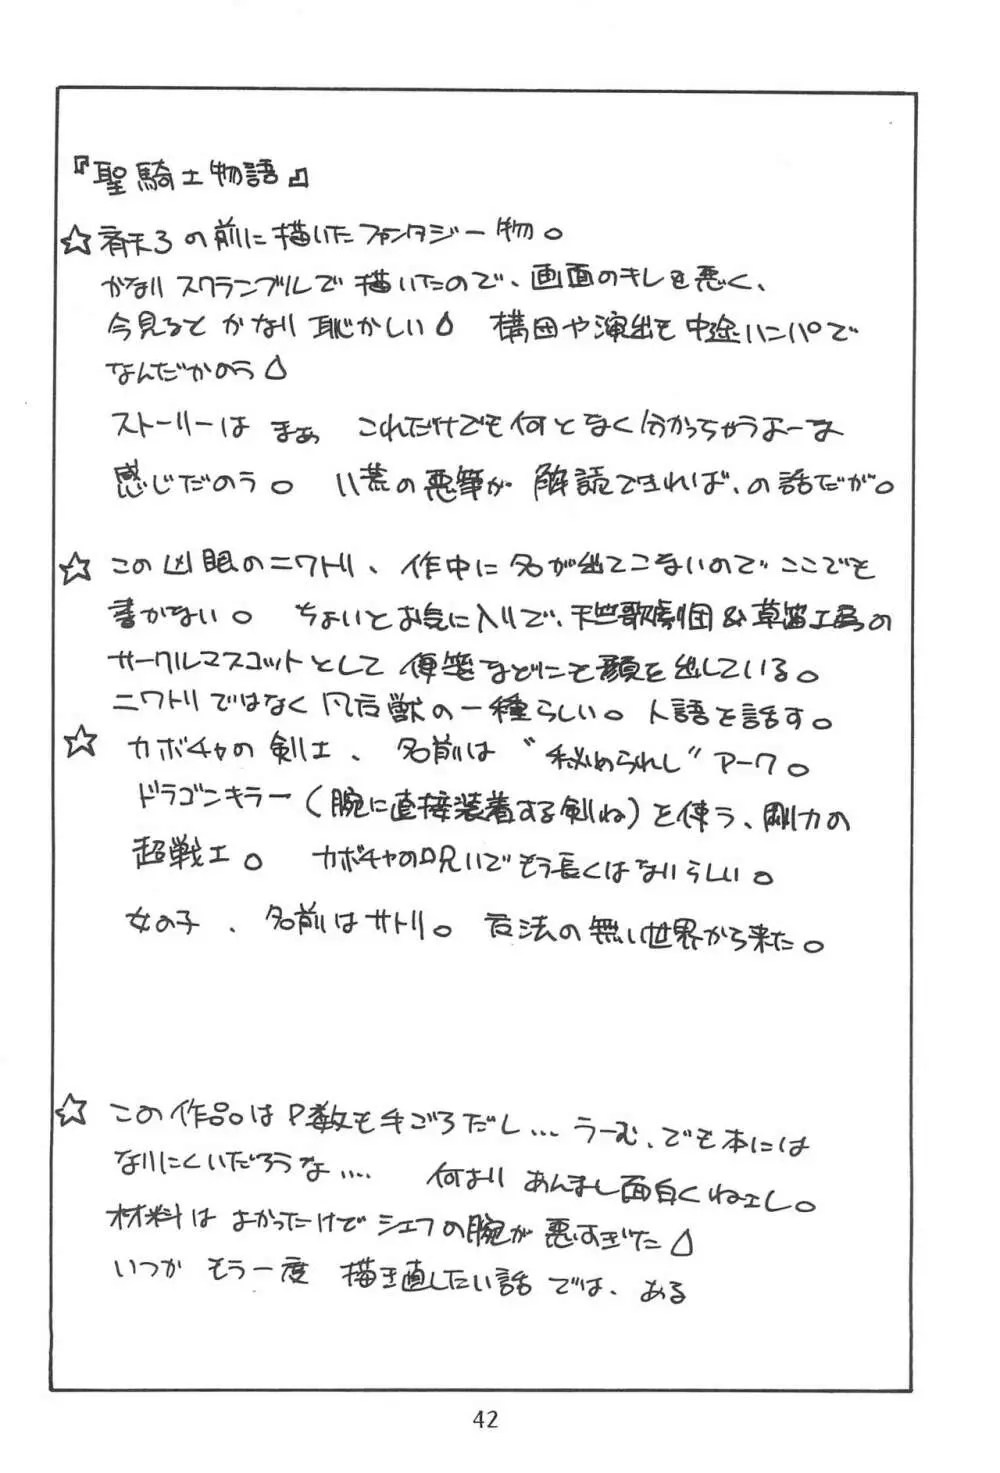 『聖騎士物語』
☆ 斉天3の前に描いたファンタジー物。
かなりスクランブルで描いたので、画面のキレも悪く、
今見ると かなり恥かしい 構図や演出も中途ハンパで
なんだかのう
ストーリーは まぁ これだけでも何となく分かっちゃうよーな
感じだのう。 八荒の悪筆が 解読できれば、の話だが。
☆ この凶眼のニワトリ、作中に名が出てこないので ここでも
書かない。 ちょいとお気に入りで、天竺歌劇団&草笛工房の
サークルマスコットとして 便箋などにも顔を出している。
ニワトリではなく 凡后獣の一種らしい。人語を話す。
☆ カボチャの剣士、名前は“秘められし”アーク。
ドラゴンキラー(腕に直接装着する剣ね)を使う、剛力の
超戦士。 カボチャの呪いでもう長くはないらしい。
女の子、名前はサトリ。 法の無い世界から来た。
☆ この作品はP数も手ごろだし… うーむ、でも本には
なりにくいだろうな…. 何より あんまし面白くねェし。
材料は よかったけど シェフの腕が悪すぎた
いつか もう一度 描き直したい話 では、ある
42